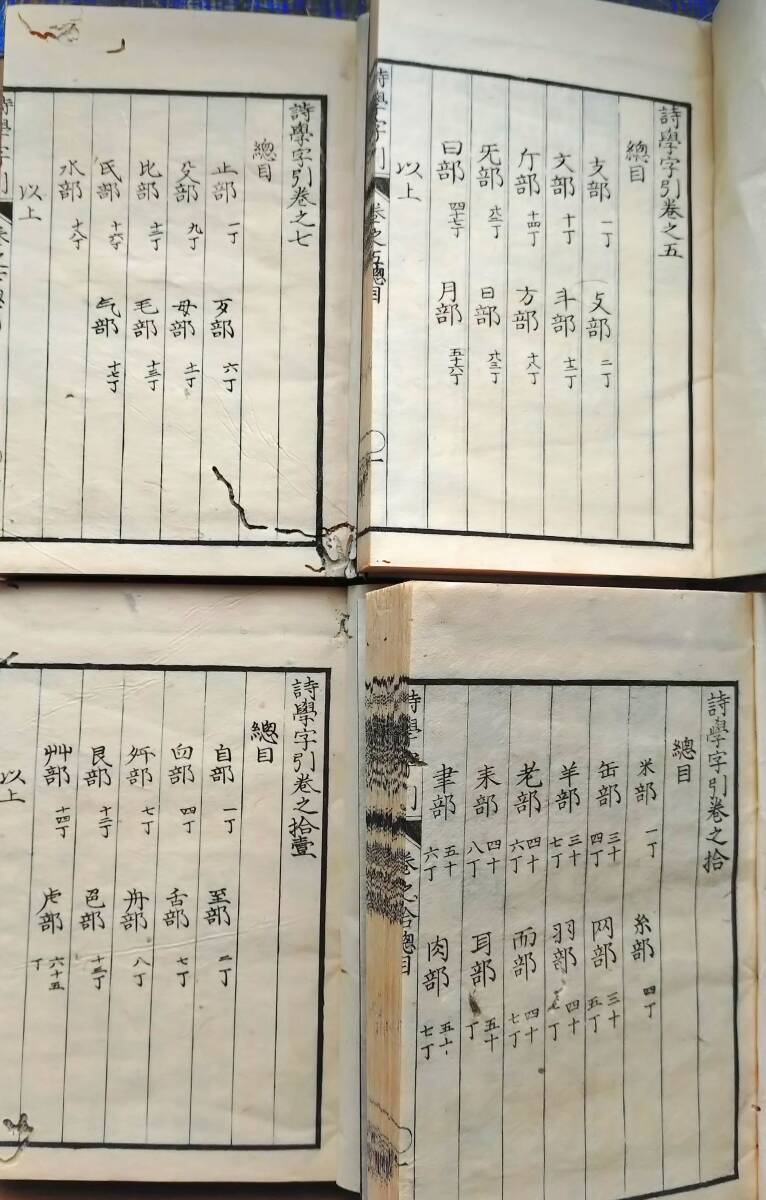 詩學字引卷之五
總目
支部 一丁 攴部 二丁
文部 十丁 斗部 十二丁
斤部 十四丁 方部 十八丁
旡部 廿二丁 日部 廿三丁
曰部 四十七丁 月部 五十六丁
以上
詩學字引 卷之五總目 一
詩學字引卷之七
總目
止部 一丁 歹部 六丁
殳部 九丁 毋部 十一丁
比部 十二丁 毛部 十三丁
氏部 十六丁 气部 十七丁
水部 十八丁
以上
詩學字引
詩學字引卷之拾
總目
米部 一丁 糸部 四丁
缶部 三十四丁 网部 三十五丁
羊部 三十七丁 羽部 四十丁
老部 四十六丁 而部 四十七丁
耒部 四十八丁 耳部 五十丁
聿部 五十六丁 肉部
詩學字引 卷之拾總目
詩學字引卷之拾壹
總目
自部 一丁 至部 二丁
臼部 四丁 舌部 七丁
舛部 七丁 舟部 八丁
艮部 十三丁 色部 十三丁
艸部 十四丁 虍部 六十五丁
以上